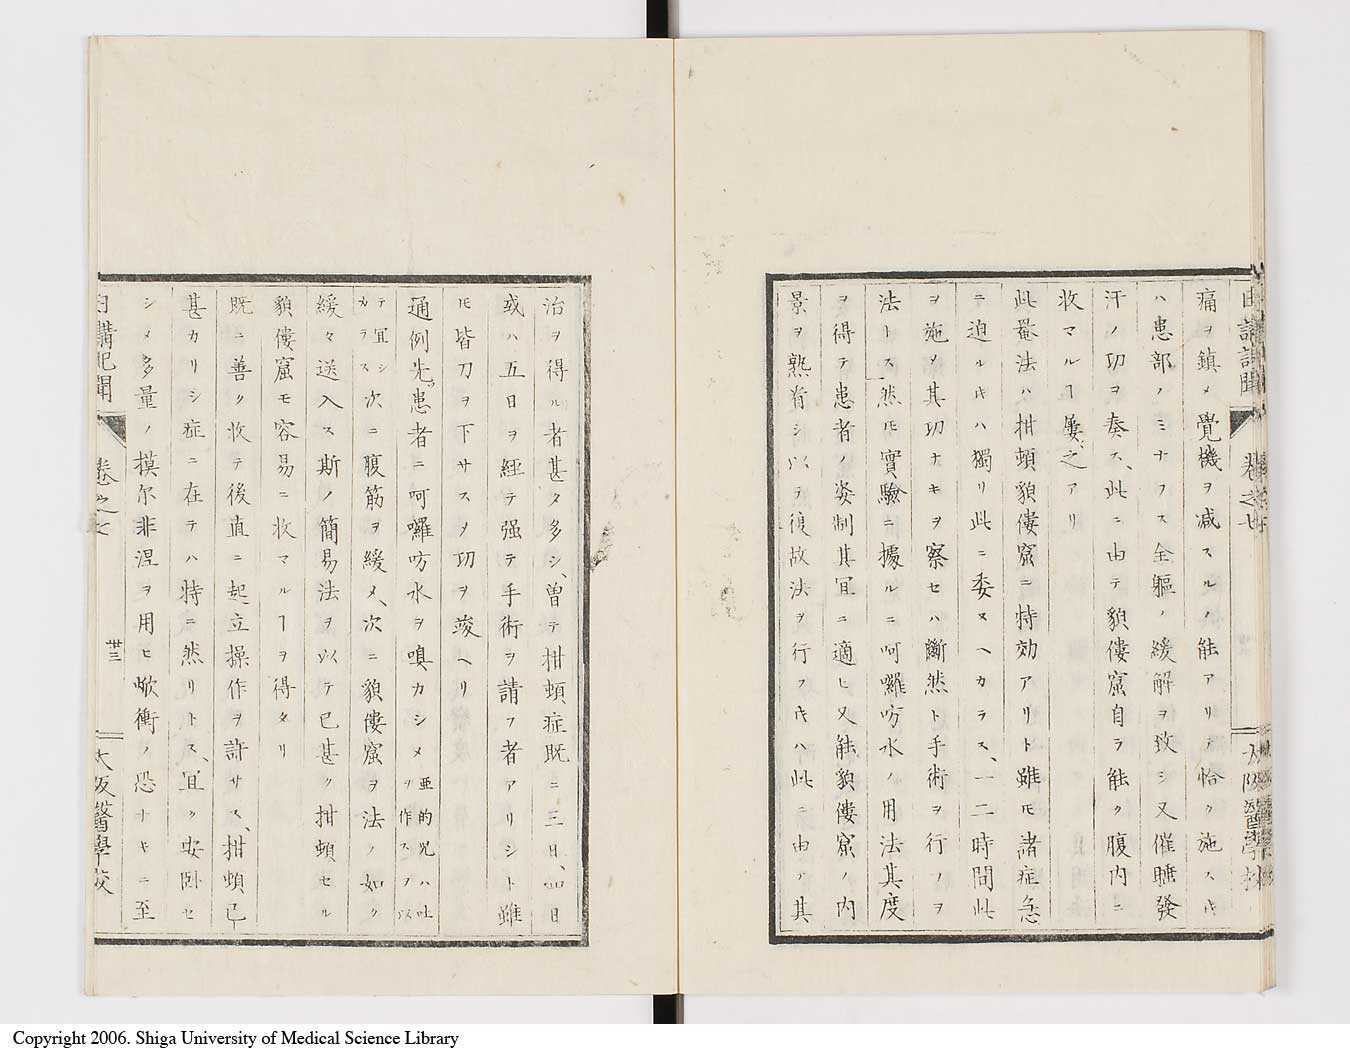 日講記聞 卷之七 大阪醫學校
痛ヲ鎮メ覺機ヲ减スルノ能アリテ恰ク施スキ
ハ患部ノミナラス全軀ノ緩解ヲ致シ又催睡發
汗ノ功ヲ奏ス、此ニ由テ貌僂窟自ラ能ク腹内ニ
收マルヿ屢、之アリ
此罨法ハ拑頓貌僂窟ニ特効アリト雖モ諸症急
ニ迫ルキハ獨リ此ニ委ヌヘカラス、一二時間此
ヲ施〆其功ナキヲ察セハ斷然ト手術ヲ行ノヲ
法トス然𪜈實驗ニ據ルニ呵囉吩水ノ用法其度
ヲ得テ患者ノ姿制其冝ニ適ヒ又能貌僂窟ノ内
景ヲ熟省シ以テ復故法ヲ行フキハ此ニ由テ其
治ヲ得ル者甚タ多シ、曽テ拑頓症既ニ三日、四日
或ハ五日ヲ經テ强テ手術ヲ請フ者アリシト雖
𪜈皆刀ヲ下サス〆功ヲ竣ヘリ
通例先患者ニ呵囉吩水ヲ嗅カシメ亜的兒ハ吐ヲ作スフ以
テ冝シカラス次ニ腹筋ヲ緩メ、次ニ貌僂窟ヲ法ノ如ク
緩々送入ス斯ノ簡易法ヲ以テ已甚ク拑頓セル
貌僂窟モ容易ニ收マルヿヲ得タリ
既ニ善ク收テ後直ニ起立操作ヲ許サス、拑頓已
甚カリシ症ニ在テハ特ニ然リトス、冝ク安卧セ
シメ多量ノ摸尓非涅ヲ用ヒ焮衝ノ恐ナキニ至
日講記聞 卷之七 廿三 大阪醫學校
Copyright 2006. Shiga University of Medical Science Library